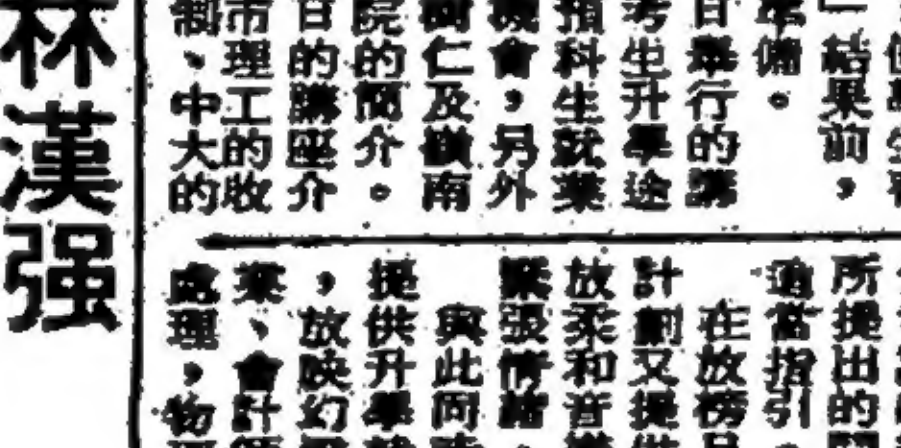 結果前，
準備。
日舉行的講
考生升學途
指科生就業
機會，另外
樹仁及嶺南
院的簡介。
日的講座介
市理工的收
制、中大的
所提出的
適當指引。
在放榜
計劃又提供
放柔和音
緊張情緒，
與此同
提供升學
，放映幻
業、會計
處理，物
林漢强